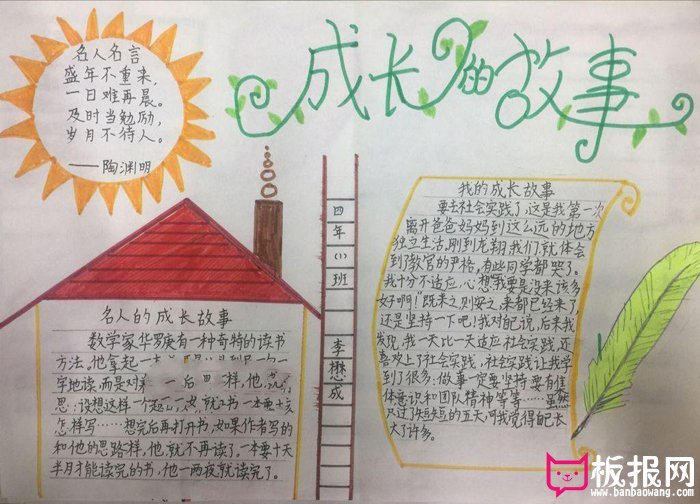 成长的故事
名人名言
盛年不重来，
一日难再晨。
及时当勉励，
岁月不待人。
——陶渊明
四年(1)班 李懋成
名人的成长故事
数学家华罗庚有一种奇特的读书
方法。他拿起一本
字地读，而是对 一 后 样，他
思：设想这样一个
怎样写……想完后再打开书，如果作者写的
和他的思路一样，他就不再读了。一本要十天
半月才能读完的书，他一两夜就读完了。
我的成长故事
要去社会实践了，这是我第一次
离开爸爸妈妈到这么远的地方
独立生活，刚到龙翔我们就体会
到了教官的严格，有些同学都哭了。
我十分不适应，心想我要是没来该多
好啊！既来之则安之，来都已经来了，
还是坚持一下吧！我对自己说，后来我
发现，我一天比一天适应社会实践，还
喜欢上了社会实践，社会实践让我学
到了很多：做事一定要坚持，要有集
体意识和团队精神等等……虽然
只过了短短的五天，可我觉得自己长
大了许多。
板报网
www.banbaowang.com